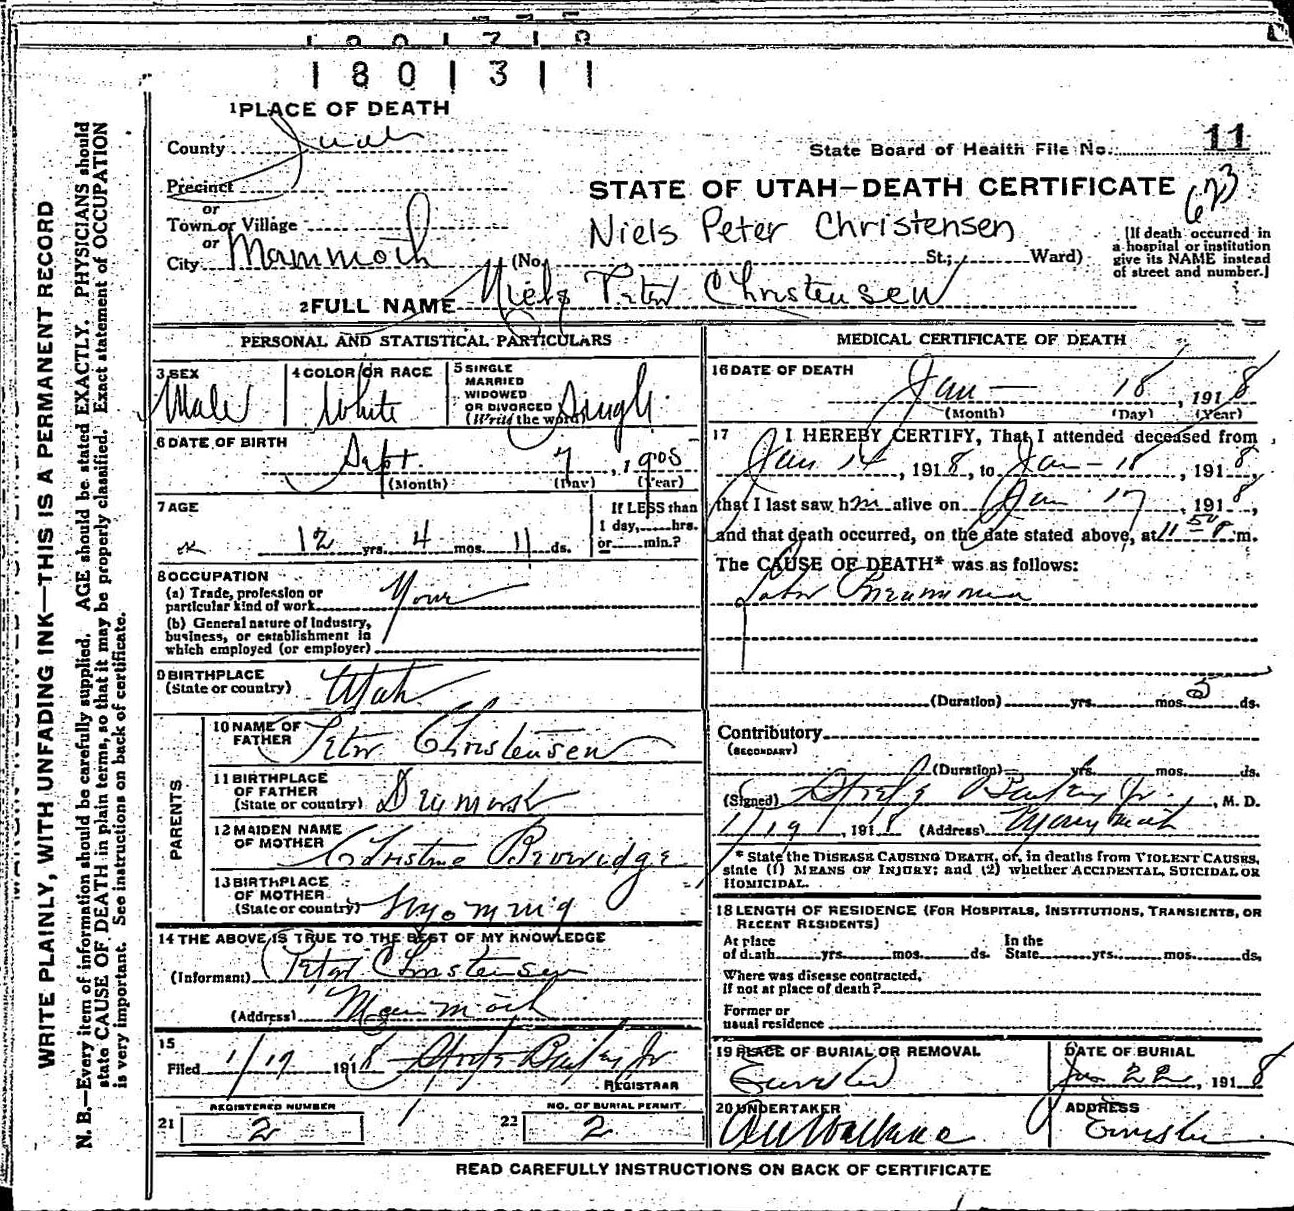 1801311
1 PLACE OF DEATH
County Juab
State Board of Health File No. 11
Precinct
or
Town or Village
or
City Mammoth
STATE OF UTAH—DEATH CERTIFICATE
623
Niels Peter Christensen
(No. St.; Ward)
[If death occurred in a hospital or institution give its NAME instead of street and number.]
2 FULL NAME Niels Peter Christensen
PERSONAL AND STATISTICAL PARTICULARS
3 SEX Male
4 COLOR OR RACE White
5 SINGLE MARRIED WIDOWED OR DIVORCED (Write the word) Single
6 DATE OF BIRTH Sept. 7, 1905
(Month) (Day) (Year)
7 AGE
12 yrs. 4 mos. 11 ds.
If LESS than 1 day, hrs. or min.?
8 OCCUPATION
(a) Trade, profession or particular kind of work None
(b) General nature of Industry, business, or establishment in which employed (or employer)
9 BIRTHPLACE (State or country) Utah
PARENTS
10 NAME OF FATHER Peter Christensen
11 BIRTHPLACE OF FATHER (State or country) Denmark
12 MAIDEN NAME OF MOTHER Christine Beveridge
13 BIRTHPLACE OF MOTHER (State or country) Wyoming
14 THE ABOVE IS TRUE TO THE BEST OF MY KNOWLEDGE
(Informant) Peter Christensen
(Address) Mammoth
15
Filed 1/19 1918 Bailey Jr
REGISTRAR
21 REGISTERED NUMBER 2
22 NO. OF BURIAL PERMIT. 2
MEDICAL CERTIFICATE OF DEATH
16 DATE OF DEATH
Jan — 18, 1918
(Month) (Day) (Year)
17 I HEREBY CERTIFY, That I attended deceased from
Jan 14, 1918, to Jan - 18, 1918,
that I last saw him alive on Jan 17, 1918,
and that death occurred, on the date stated above, at 11 50 m.
The CAUSE OF DEATH* was as follows:
Lobar Pneumonia
(Duration) yrs. mos. 5 ds.
Contributory
(SECONDARY)
(Duration) yrs. mos. ds.
(Signed) Bailey Jr., M. D.
1/19, 1918 (Address) Mammoth
* State the DISEASE CAUSING DEATH, or, in deaths from VIOLENT CAUSES,
state (1) MEANS OF INJURY; and (2) whether ACCIDENTAL, SUICIDAL OR
HOMICIDAL.
18 LENGTH OF RESIDENCE (FOR HOSPITALS, INSTITUTIONS, TRANSIENTS, OR
RECENT RESIDENTS)
At place of death yrs. mos. ds. In the State yrs. mos. ds.
Where was disease contracted, If not at place of death?
Former or usual residence
19 PLACE OF BURIAL OR REMOVAL Eureka
DATE OF BURIAL Jan 22, 1918
20 UNDERTAKER Wallace
ADDRESS Eureka
READ CAREFULLY INSTRUCTIONS ON BACK OF CERTIFICATE
WRITE PLAINLY, WITH UNFADING INK—THIS IS A PERMANENT RECORD
N. B.—Every item of information should be carefully supplied. AGE should be stated EXACTLY. PHYSICIANS should
state CAUSE OF DEATH in plain terms, so that it may be properly classified. Exact statement of OCCUPATION
is very important. See instructions on back of certificate.